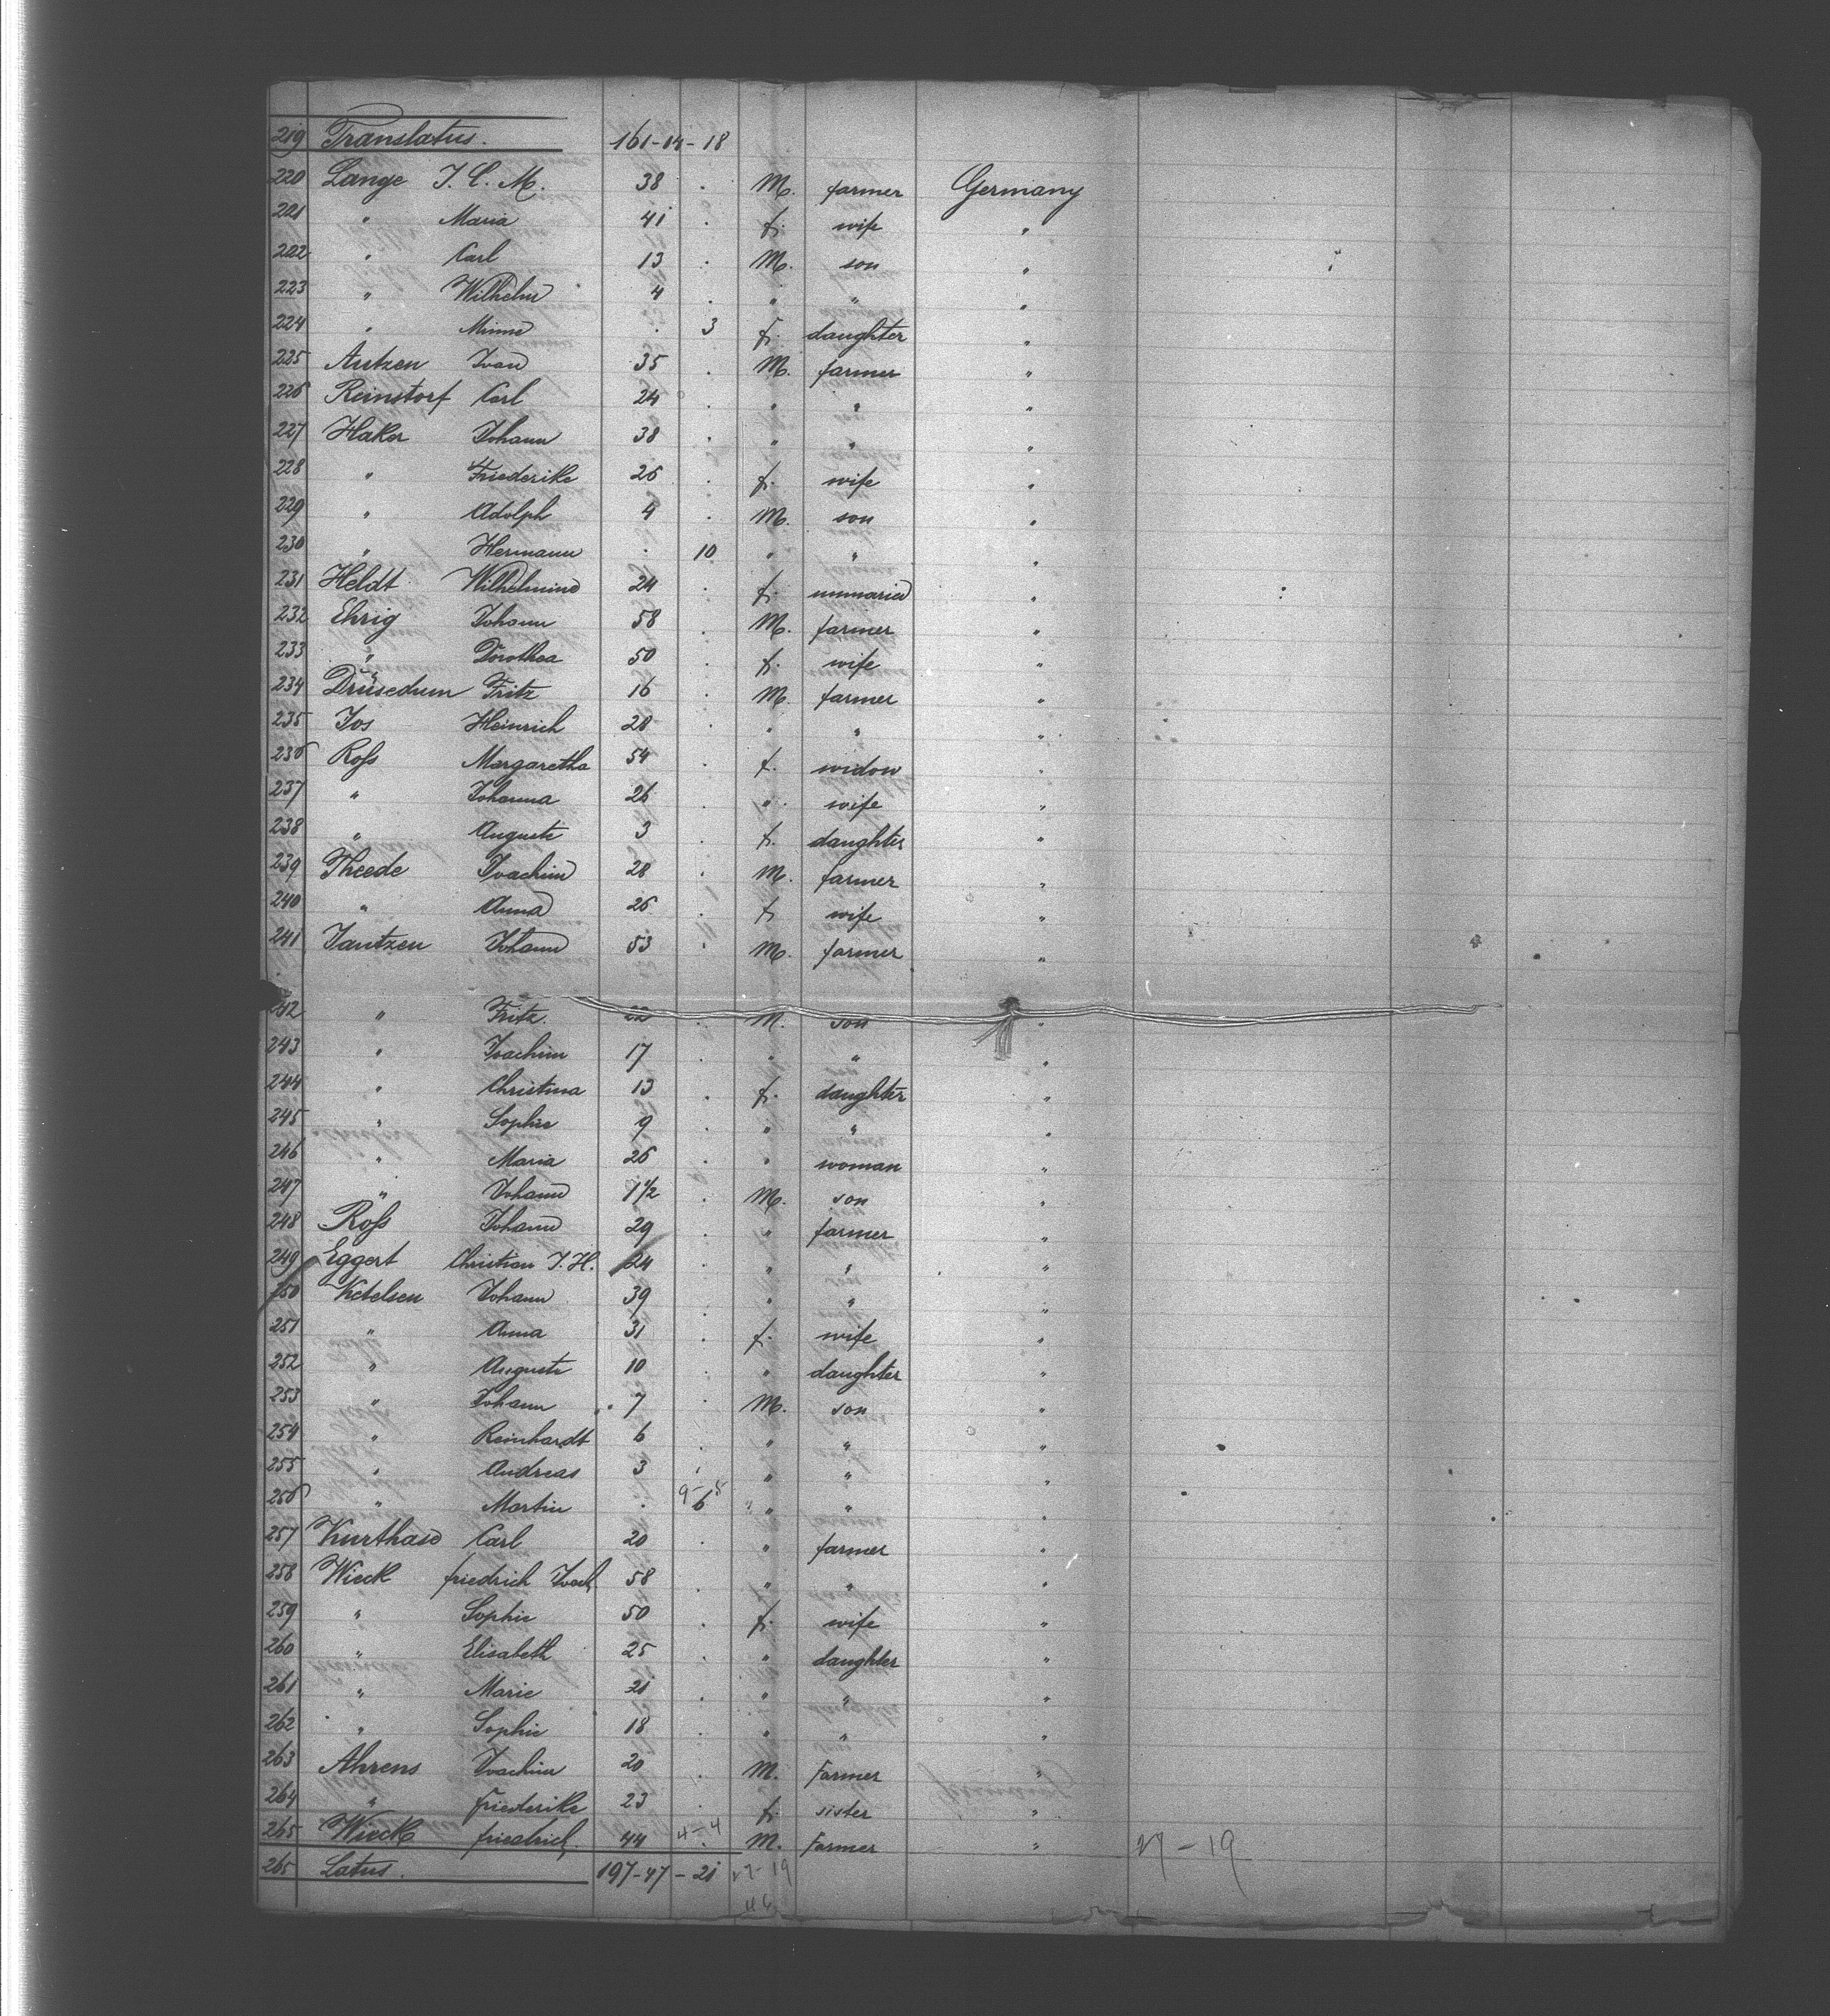 219 Translatus. 161-14-18
220 Lange J. C. M. 38 . M. farmer Germany
221 " Maria 41 . f. wife "
222 " Carl 13 . M. son "
223 " Wilhelm 4 . " " "
224 " Minna . 3 f. daughter "
225 Antzen Ivan 35 . M. farmer "
226 Reinstorf Carl 24 . " " "
227 Haker Johann 38 . " " "
228 " Friederike 26 . f. wife "
229 " Adolph 4 . M. son "
230 " Hermann . 10 " " "
231 Heldt Wilhelmine 24 . f. unmaried "
232 Ehrig Johann 58 . M. farmer "
233 " Dorothea 50 . f. wife "
234 Drüsedum Fritz 16 . M. farmer "
235 Jos Heinrich 28 . " " "
236 Roß Margaretha 54 . f. widow "
237 " Johanna 26 . " wife "
238 " Auguste 3 . f. daughter "
239 Theede Joachim 28 . M. farmer "
240 " Anna 26 . f. wife "
241 Jantzen Johann 53 . M. farmer "
242 " Fritz. 22 . M. son "
243 " Joachim 17 . " " "
244 " Christina 13 . f. daughter "
245 " Sophie 9 . " " "
246 " Maria 26 . " woman "
247 " Johann 1 1/2 . M. son "
248 Roß Johann 29 . " farmer "
249 Eggert Christian J. H. 24 . " " "
250 Ketelsen Johann 39 . " " "
251 " Anna 31 . f. wife "
252 " Auguste 10 . " daughter "
253 " Johann 7 . M. son "
254 " Reinhardt 6 . " " "
255 " Andreas 3 . " " "
256 " Martin . 6 " " "
257 Kurthase Carl 20 . " farmer "
258 Wieck friedrich Joach 58 . " " "
259 " Sophie 50 . f. wife "
260 " Elisabeth 25 . " daughter "
261 " Marie 21 . " " "
262 " Sophie 18 . " " "
263 Ahrens Joachim 20 . M. Farmer "
264 " Friederike 23 . f. sister "
265 Wieck friedrich. 44 4-4 M. Farmer " 27-19
265 Latus. 197-47-21 27-19
46